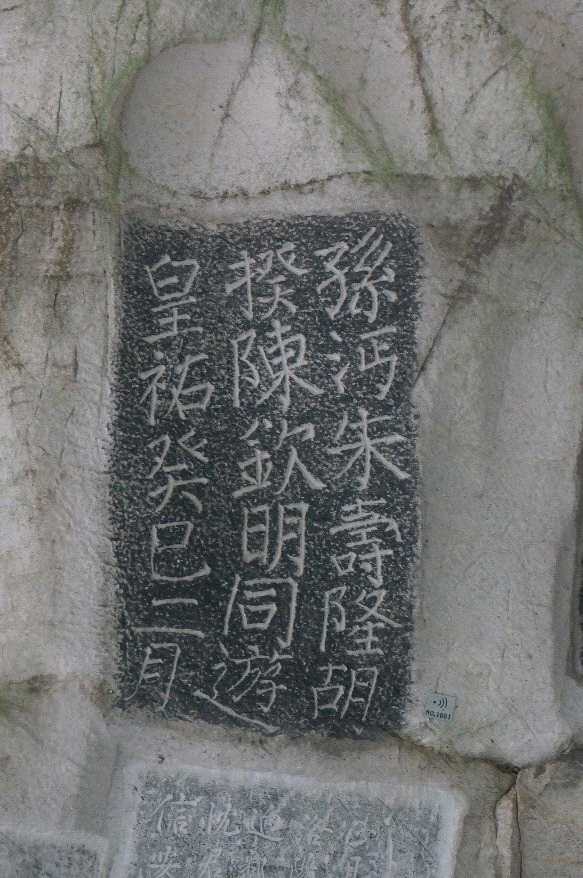 孫沔朱壽隆胡
揆陳欽明同遊
皇祐癸巳二月
NO.1001